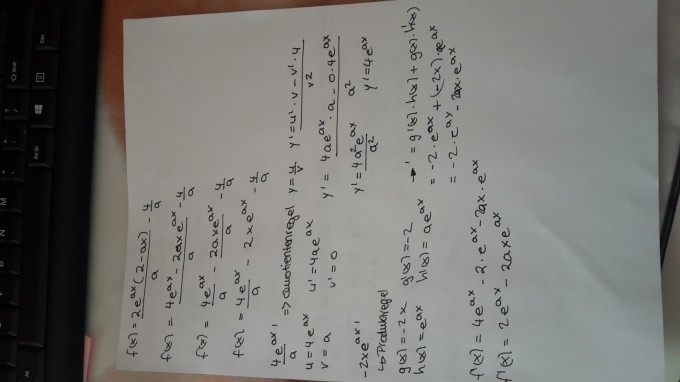 f(x) = 2e^ax (2-ax)/a - 4/a
f(x) = (4e^ax - 2axe^ax)/a - 4/a
f(x) = 4e^ax/a - 2axe^ax/a - 4/a
f(x) = 4e^ax/a - 2xe^ax - 4/a
4e^ax'/a => Quotientenregel y = u/v y' = (u'·v - v'·u)/v²
u = 4e^ax u' = 4ae^ax
v = a v' = 0
y' = (4ae^ax · a - 0·4e^ax)/a²
y' = 4a²e^ax/a² y' = 4e^ax
-2xe^ax'
↳ Produktregel
g(x) = -2x g'(x) = -2
h(x) = e^ax h'(x) = ae^ax
→ ' = g'(x)·h(x) + g(x)·h'(x)
= -2·e^ax + (-2x)·ae^ax
= -2·e^ax - 2ax·e^ax
f'(x) = 4e^ax - 2·e^ax - 2ax·e^ax
f'(x) = 2e^ax - 2axe^ax